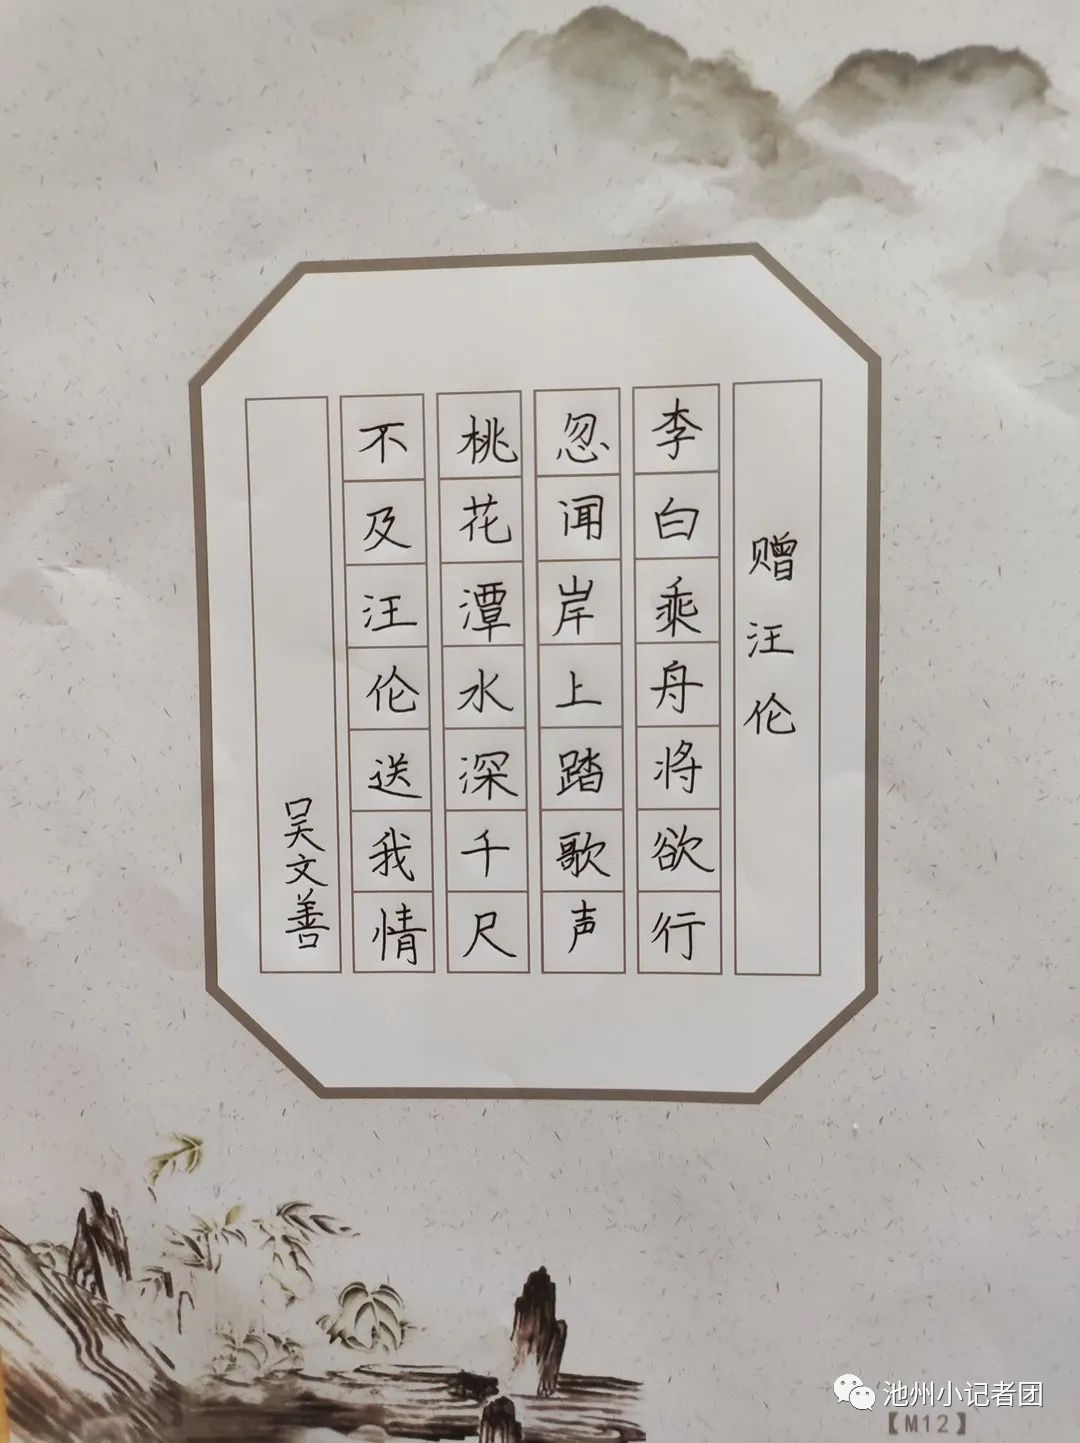 赠汪伦
李白乘舟将欲行
忽闻岸上踏歌声
桃花潭水深千尺
不及汪伦送我情
吴文善
池州小记者团
【M12】